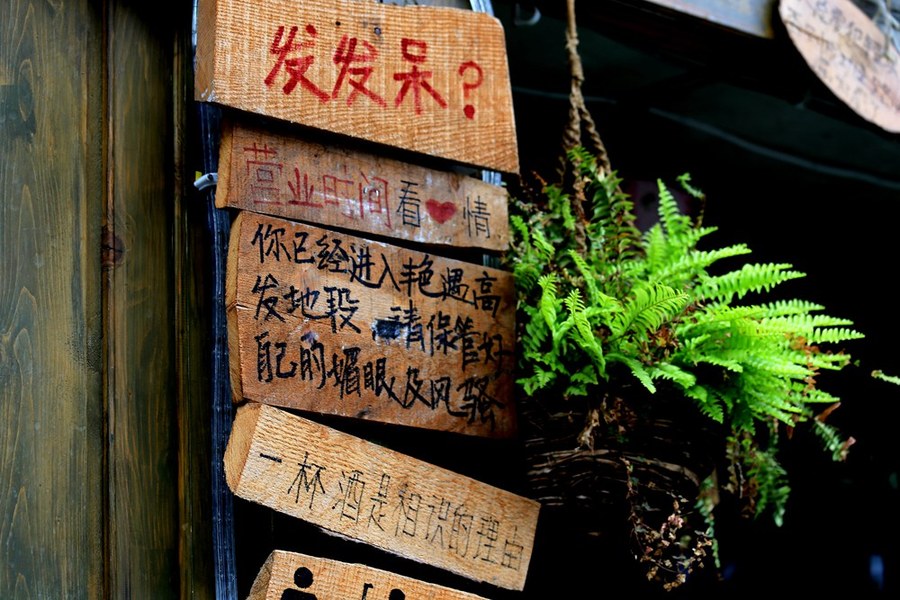 发发呆?
营业时间看❤情
你已经进入艳遇高
发地段 请保管好
自己的媚眼及风骚
一杯酒是相识的理由